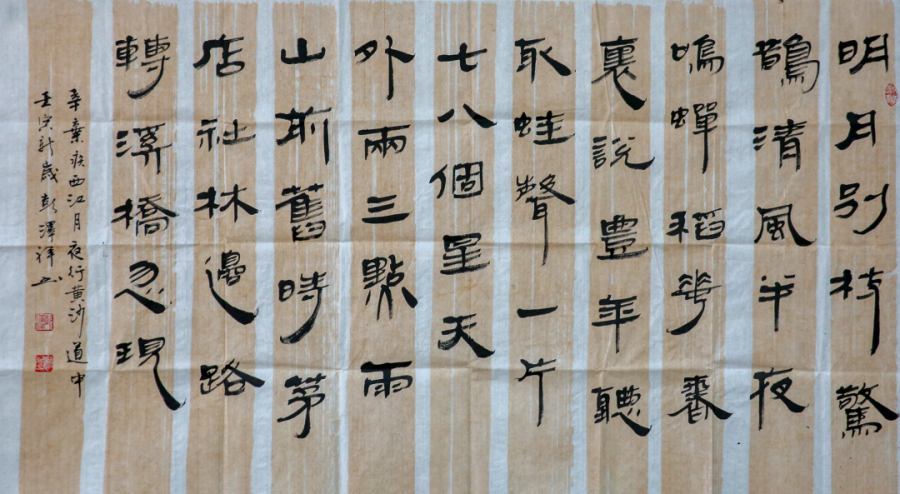 明月别枝驚
鵲清風半夜
鳴蟬稻華香
裏說豐年聽
取蛙聲一片
七八個星天
外兩三點雨
山前舊時茅
店社林邊路
轉溪橋忽現
辛棄疾西江月夜行黄沙道中
壬寅新歲彭澤祥书